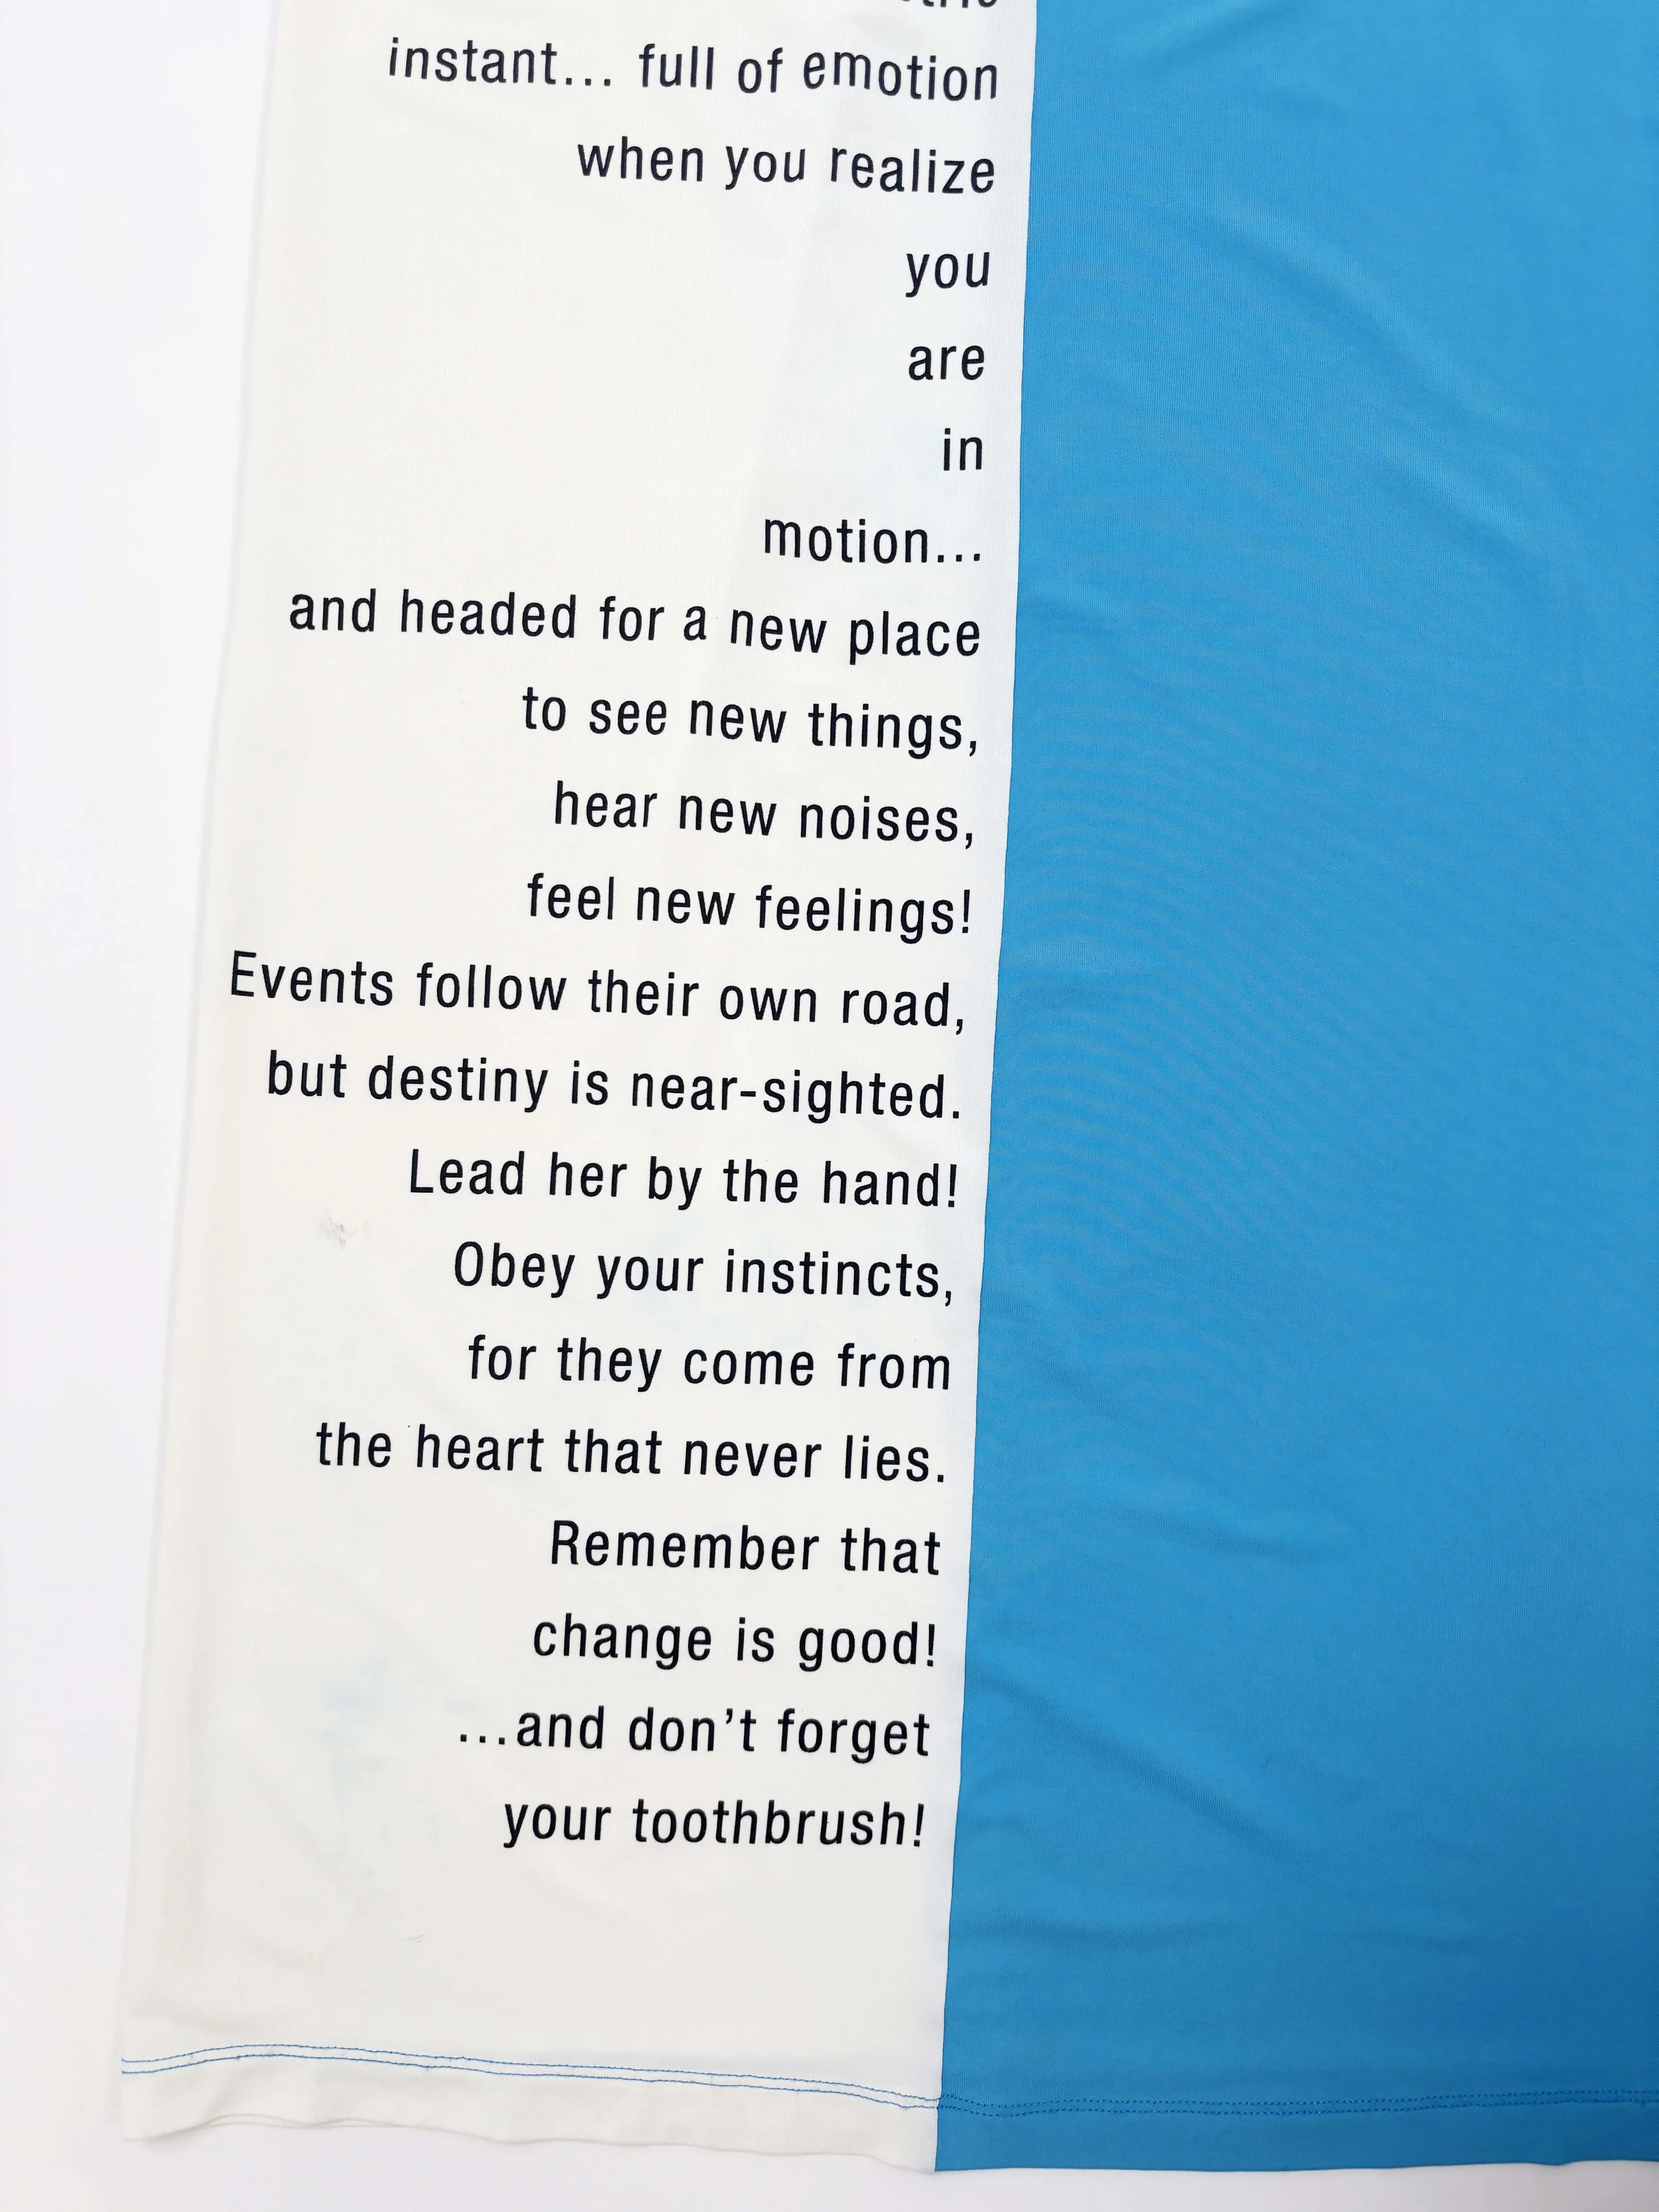 instant... full of emotion
when you realize
you
are
in
motion...
and headed for a new place
to see new things,
hear new noises,
feel new feelings!
Events follow their own road,
but destiny is near-sighted.
Lead her by the hand!
Obey your instincts,
for they come from
the heart that never lies.
Remember that
change is good!
...and don’t forget
your toothbrush!